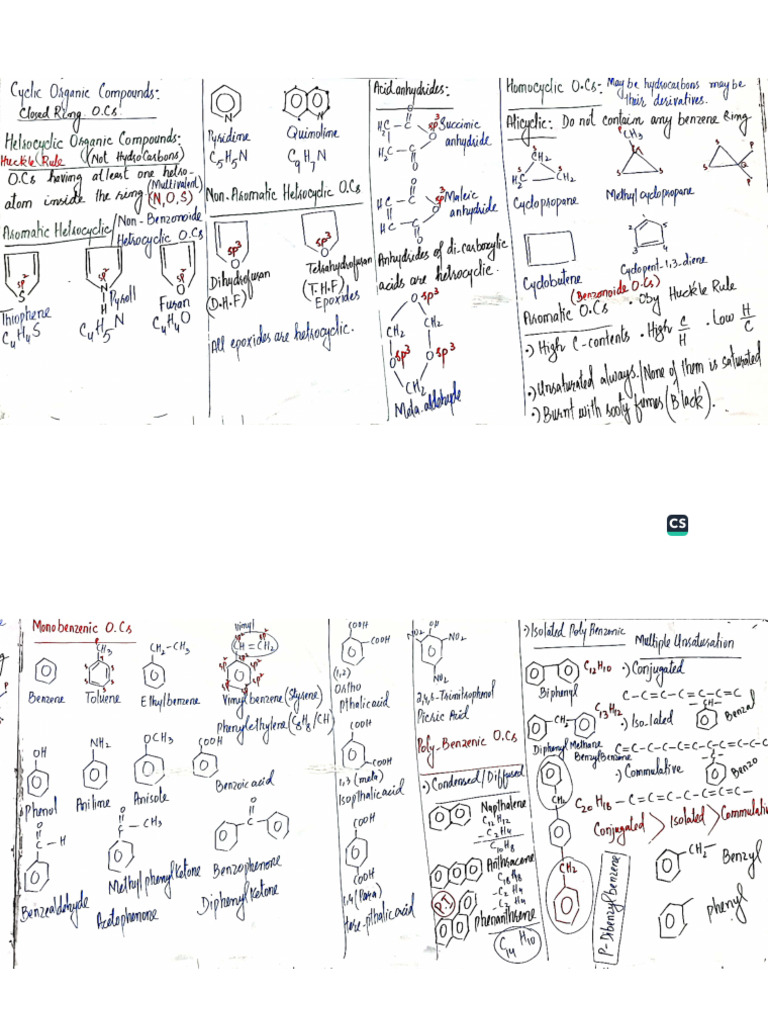 Cyclic Organic Compounds:-
Closed Ring O.Cs.
Hetrocyclic Organic Compounds:
Huckle Rule (Not Hydrocarbons)
O.Cs having atleast one hetro-
atom inside the ring (Multivalent)
(N,O,S)
Aromatic Hetrocyclic/Non-Benzonoide
Hetrocyclic O.Cs
sp²
S
Thiophene
C4H4S
sp²
N
H
Pyroll
C4H5N
sp²
O
Furan
C4H4O
N
Pyridine
C5H5N
N
Quinoline
C9H7N
Non-Aromatic Hetrocyclic O.Cs
sp³
O
Dihydrofuran
(D.H.F)
sp³
O
Tetrahydrofuran
(T.H.F)
Epoxides
All epoxides are hetrocyclic.
Acid anhydrides:-
Succinic
anhydride
Maleic
anhydride
Anhydrides of di-carboxylic
acids are hetrocyclic.
O sp³
CH2
CH2
O sp³
O sp³
CH2
Meta-aldehyde
Homocyclic O.Cs:- May be hydrocarbons may be
their derivatives.
Alicyclic: Do not contain any benzene Ring
CH2
H2C
CH2
Cyclopropane
CH3
Methyl cyclopropane
Cyclobutene
Cyclopent-1,3-diene
(Benzonoide O.Cs)
Aromatic O.Cs • Oby Huckle Rule
•) High C-contents • High C/H • Low H/C
•) Unsaturated always./None of them is saturated
•) Burnt with sooty fumes (Black).
CS
Monobenzenic O.Cs
Benzene
CH3
Toluene
CH2-CH3
Ethylbenzene
vinyl
CH=CH2
Vinyl benzene (Styrene)
Phenylethylene (C8H8/CH)
OH
Phenol
NH2
Aniline
OCH3
Anisole
COOH
Benzoic acid
O
C-H
Benzealdehyde
O
C-CH3
Methylphenylketone
Acetophenone
O
C
Benzophenone
Diphenylketone
COOH
COOH
(1,2)
Ortho
pthalic acid
COOH
COOH
1,3 (meta)
Isopthalic acid
COOH
COOH
1,4 (Para)
Tere-pthalic acid
NO2
NO2
NO2
2,4,6-Trinitrophenol
Picric Acid
Poly-Benzenic O.Cs
•) Condensed/Diffused
Napthalene
C12H12
-C2H4
C10H8
Anthracene
C18H18
-C2H4
-C2H4
P.I
phenanthrene
C14H10
•) Isolated Poly Benzenic
C12H10
Biphenyl
CH2
C13H12
Diphenyl Methane
Benzyl Benzene
CH2
CH2
C20H18
P-Dibenzyl benzene
Multiple Unsaturation
•) Conjugated
C-C=C-C=C-C=C
•) Iso-lated
-CH-
Benzal
C=C-C-C=C-C-C=C-C
•) Commulative
-C-
Benzo
-C=C=C-C=C=C-C-
Conjugated > Isolated > Commulative
CH2-
Benzyl
phenyl